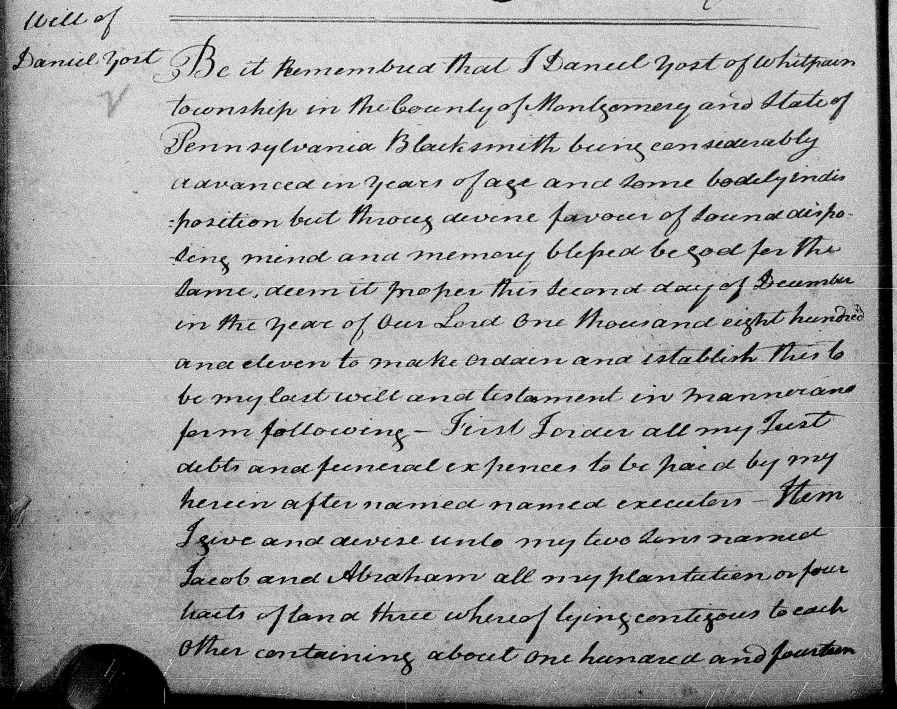 Will of
Daniel Yost
Be it Remembred that I Daniel Yost of Whitpain
township in the County of Montgomery and State of
Pennsylvania Blacksmith being considerably
advanced in Years of age and some bodely indis
-position but throug devine favour of Sound dispo-
sing mind and memory blessed be god for the
Same, deem it proper this Second day of December
in the Year of Our Lord One thousand eight hundred
and eleven to make ordain and establish this to
be my last will and testament in manner and
form following - First I order all my Just
debts and funeral expences to be paid by my
herein after named named executors - Item
I give and devise unto my two Sons named
Jacob and Abraham all my plantation or four
tracts of land three whereof lying contigous to each
Other containing about One hundred and fourteen